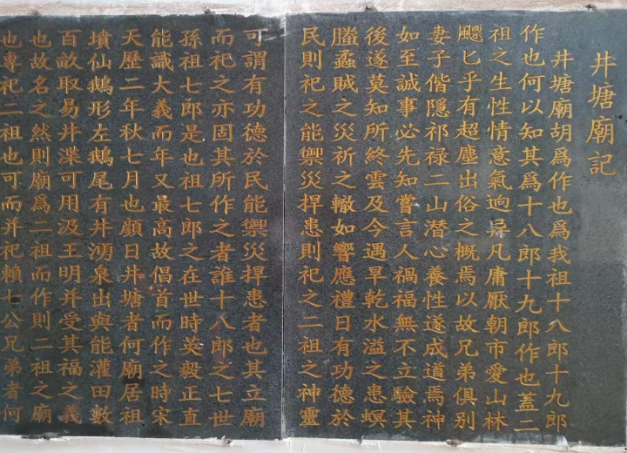 井塘廟記
井塘廟胡爲作也爲我祖十八郎十九郎
作也何以知其爲十八郎十九郎作也蓋二
祖之生性情意氣逈异凡庸厭朝市愛山林
飈匕乎有超塵出俗之概焉以故兄弟俱别
妻子偕隱祁禄二山潜心養性遂成道焉神
如至誠事必先知嘗言人禍福無不立驗其
後遂莫知所終雲及今遇旱乾水溢之患螟
螣蟊賊之災祈之輙如響應禮日有功德於
民則祀之能禦災捍患則祀之二祖之神靈
可謂有功德於民能禦災捍患者也其立廟
而祀之亦固其所作之者誰十八郎之七世
孫祖七郎是也祖七郎之在世時英毅正直
能識大義而年又最高故倡首而作之時宋
天歷二年秋七月也顏日井塘者何廟居祖
墳仙鵝形左鵝尾有井湧泉出與能灌田數
百畝取易井渫可用汲王明并受其福之義
也故名之然則廟爲二祖而作則二祖之廟
也專祀二祖也可而并祀賴七公兄弟者何